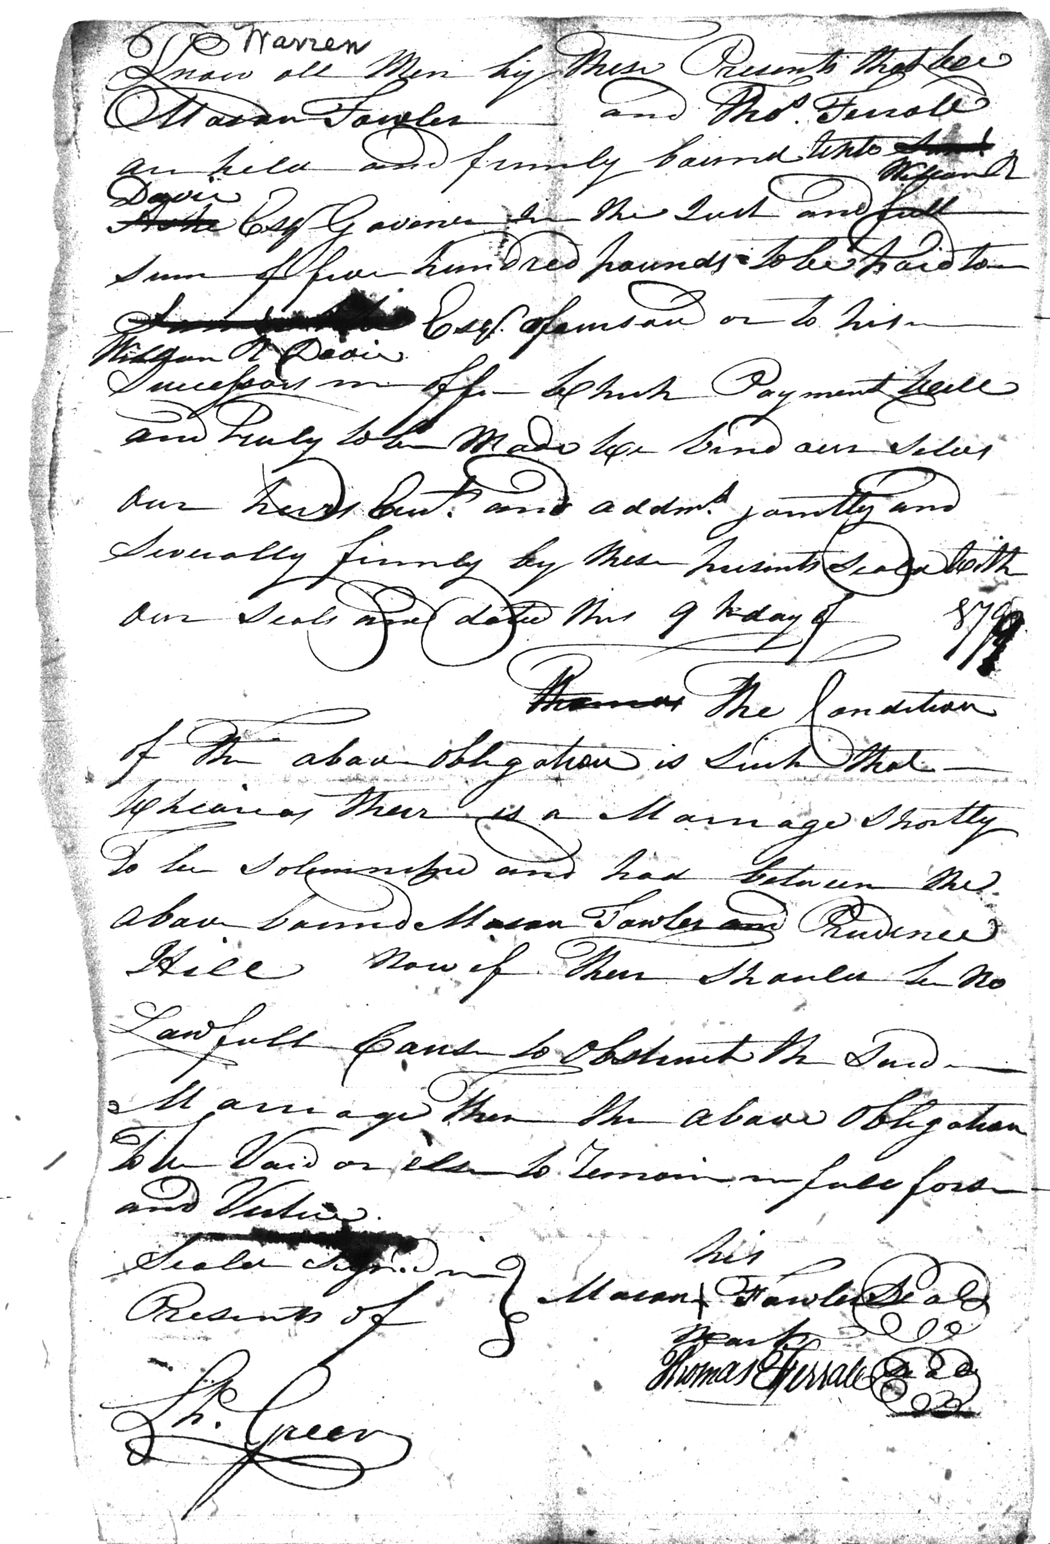 Warren
Know all Men by These Presents that we
Mason Fowler and Thos. Ferrole
are held and firmly bound unto
William R
Davie
Esqr Govenor In the Just and full
sum of five hundred pounds to be paid to
Esqr. aforesaid or to his
William R Davie
Successors in offe which Payment well
and Truly to be Made we bind our selves
our heirs Exrs. and addmrs. jointly and
severally firmly by these presents seald with
our seals and date this 9th day of 179
Thomas The Condition
of The above obligation is such that
wheareas their is a Marriage shortly
To be solemnized and had between the
above bound Mason Fowler and Prudence
Hill Now if Their should be No
Lawfull Cause to Obstruct the Said
Marriage Then the above obligation
To be Void or else to Remain in full force
and Vertue
Seald Signd in
Presents of
his
Mason + Fowler Seal
mark
Thomas Ferrale Seal
Sh. Green